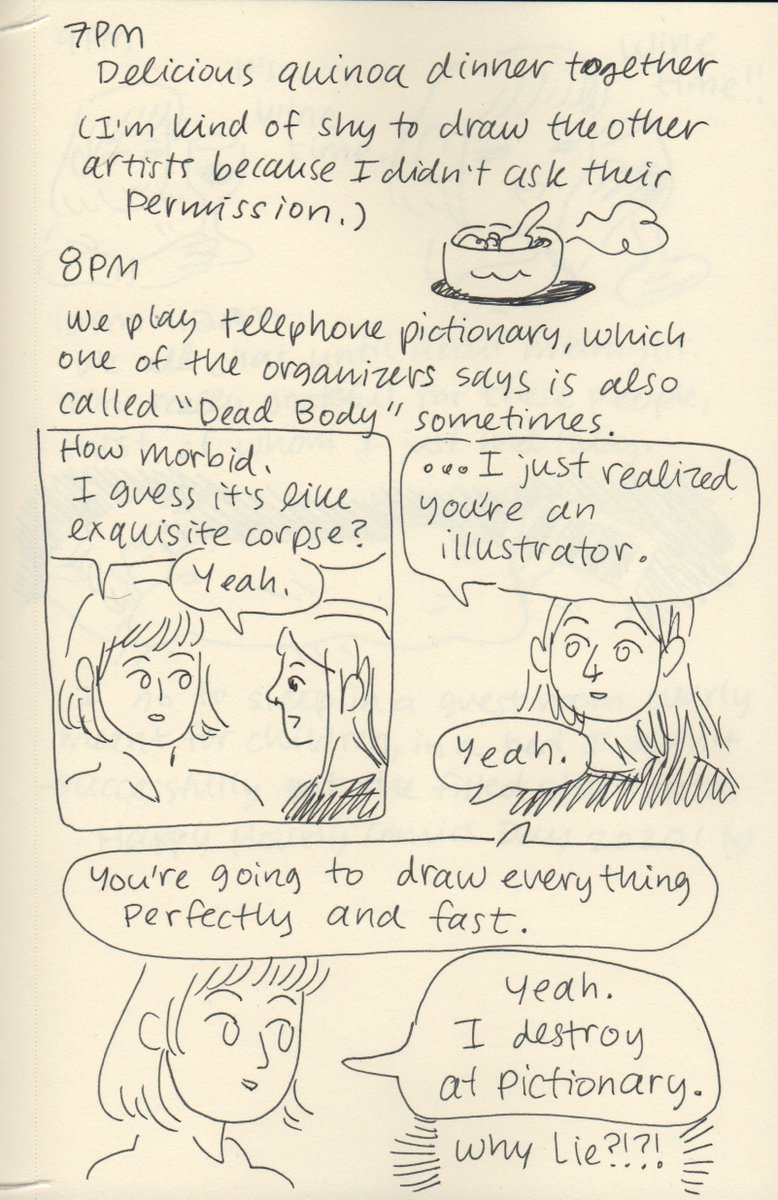 7PM
Delicious quinoa dinner together
(I'm kind of shy to draw the other
artists because I didn't ask their
Permission.)
8PM
We play telephone pictionary, which
one of the organizers says is also
called "Dead Body" sometimes.
How morbid.
I guess it's like
exquisite corpse?
Yeah.
...I just realized
you're an
illustrator.
Yeah.
You're going to draw everything
Perfectly and fast.
Yeah.
I destroy
at Pictionary.
Why Lie?!?!